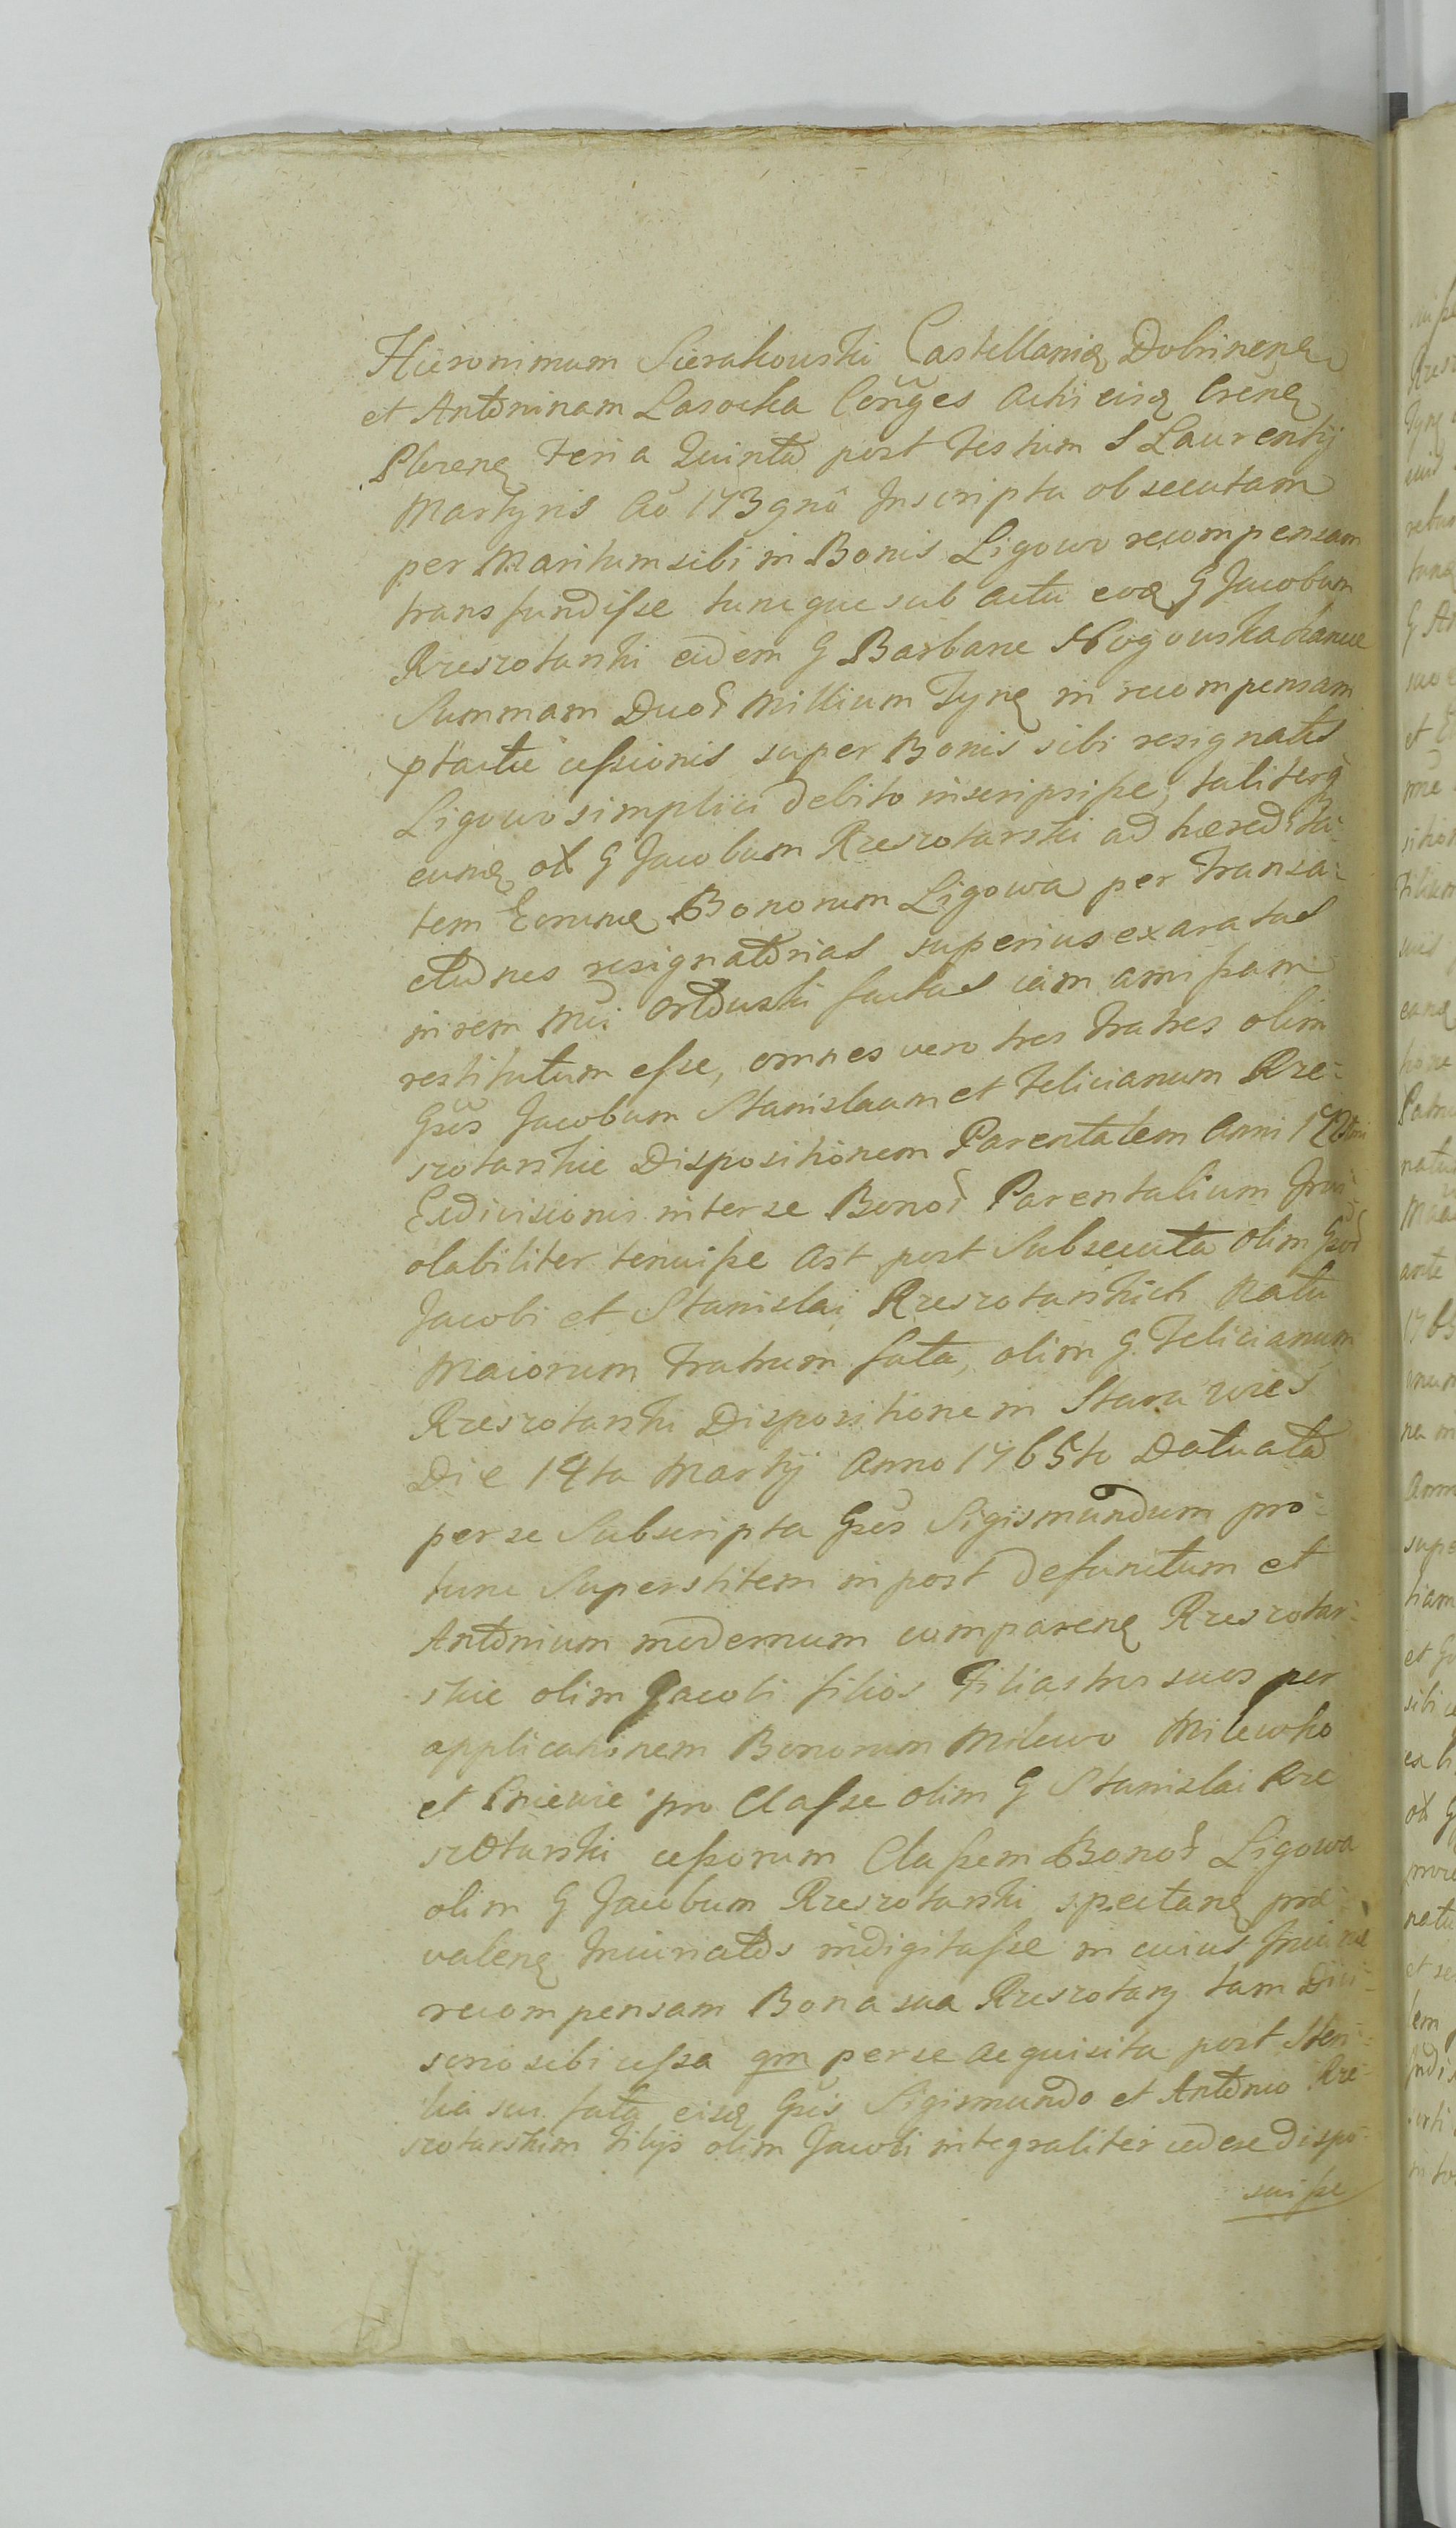 Hieronimum Sierakowski Castellanię Dobrinenę
et Antoninam Lasocka Coñges Actis eisę Crenę
Plocenę Feria Quinta post Festum S Laurentij
Martyris Ao 1739nô Inscripta obsecutam
per Maritum sibi in Bonis Ligowo recompensam
transfundisse tuncque sub actu eoę G Jacobum
Rzeszotarski eidem G Barbarae Nogowska
Summam Duor Millium Tynę in recompensam
ptactae cessionis super Bonis sibi resignatis
Ligowo simplici debito inscripsisse, taliterq
eunę ol G Jacobum Rzeszotarski ad haeredita-
tem Eorunę Bonorum Ligowa per Transa-
ctiones resignatorias superius exaratas
in rem factas iam amissam
restitutum esse, omnes vero tres Fratres olim
Gsos Jacobum Stanislaum et Felicianum Rze-
szotarskie Dispositionem Parentalem Anni
Exdivisionis inter se Bonor Parentalium Invi-
olabiliter tenuisse Ast post Subsecuta olim Gsor
Jacobi et Stanislai Rzeszotarskich Natu
Maiorum Fratrum fata, olim G. Felicianum
Rzeszotarski Dispositione in Stara wies
Die 14ta Martij Anno 1765to Datuata
per se Subscripta Gsos Sigismundum pro-
tunc Superstitem in post defunctum et
Antonium modernum comparenę Rzeszotar-
skie olim Jacobi filios Filiastros suos per
applicationem Bonorum Milewo Milewko
et Kniewie pro Classe olim G Stanislai Rze
szotarski cessorum Classem Bonor Ligowa
olim G Jacobum Rzeszotarski spectanę prae-
valenę Iniuriatos indigitasse in cuius Iniuriae
recompensam Bona sua Rzeszotary tam Divi-
sorio sibi cessa qm per se acquisita post Steri-
lia sui fata eisę Gsis Sigismundo et Antonio Rze-
szotarskim Filijs olim Jacobi integraliter cedere dispo-
suisse